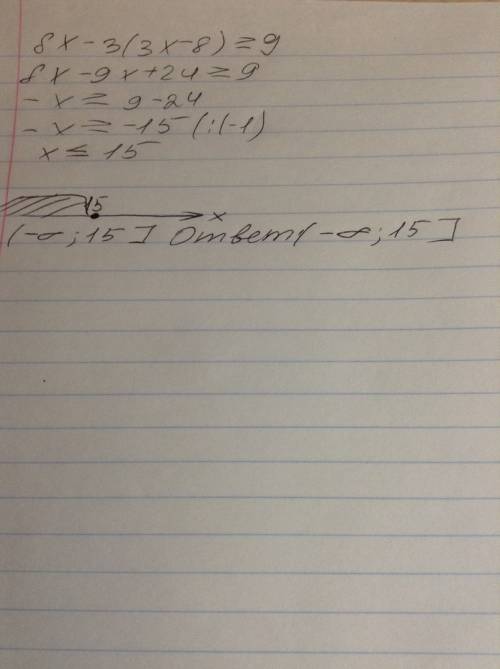 8x-3(3x-8)≥9
8x-9x+24≥9
-x≥9-24
-x≥-15 (:(-1)
x≤15
15
x
(-∞;15] Ответ(-∞;15]